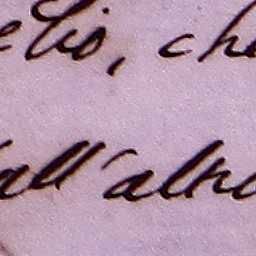 elio, che
all'altro